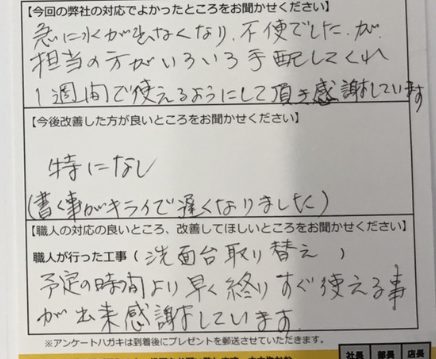 【今回の弊社の対応でよかったところをお聞かせください】
急に水が出なくなり、不便でした。が、
担当の方がいろいろ手配してくれ
1週間で使えるようにして頂き感謝しています
【今後改善した方が良いところをお聞かせください】
特になし
(書く事がキライで遅くなりました)
【職人の対応の良いところ、改善してほしいところをお聞かせください】
職人が行った工事(洗面台取り替え)
予定の時間より早く終りすぐ使える事
が出来感謝しています
※アンケートハガキは到着後にプレゼントを郵送させていただきます。
社長 部長 店長